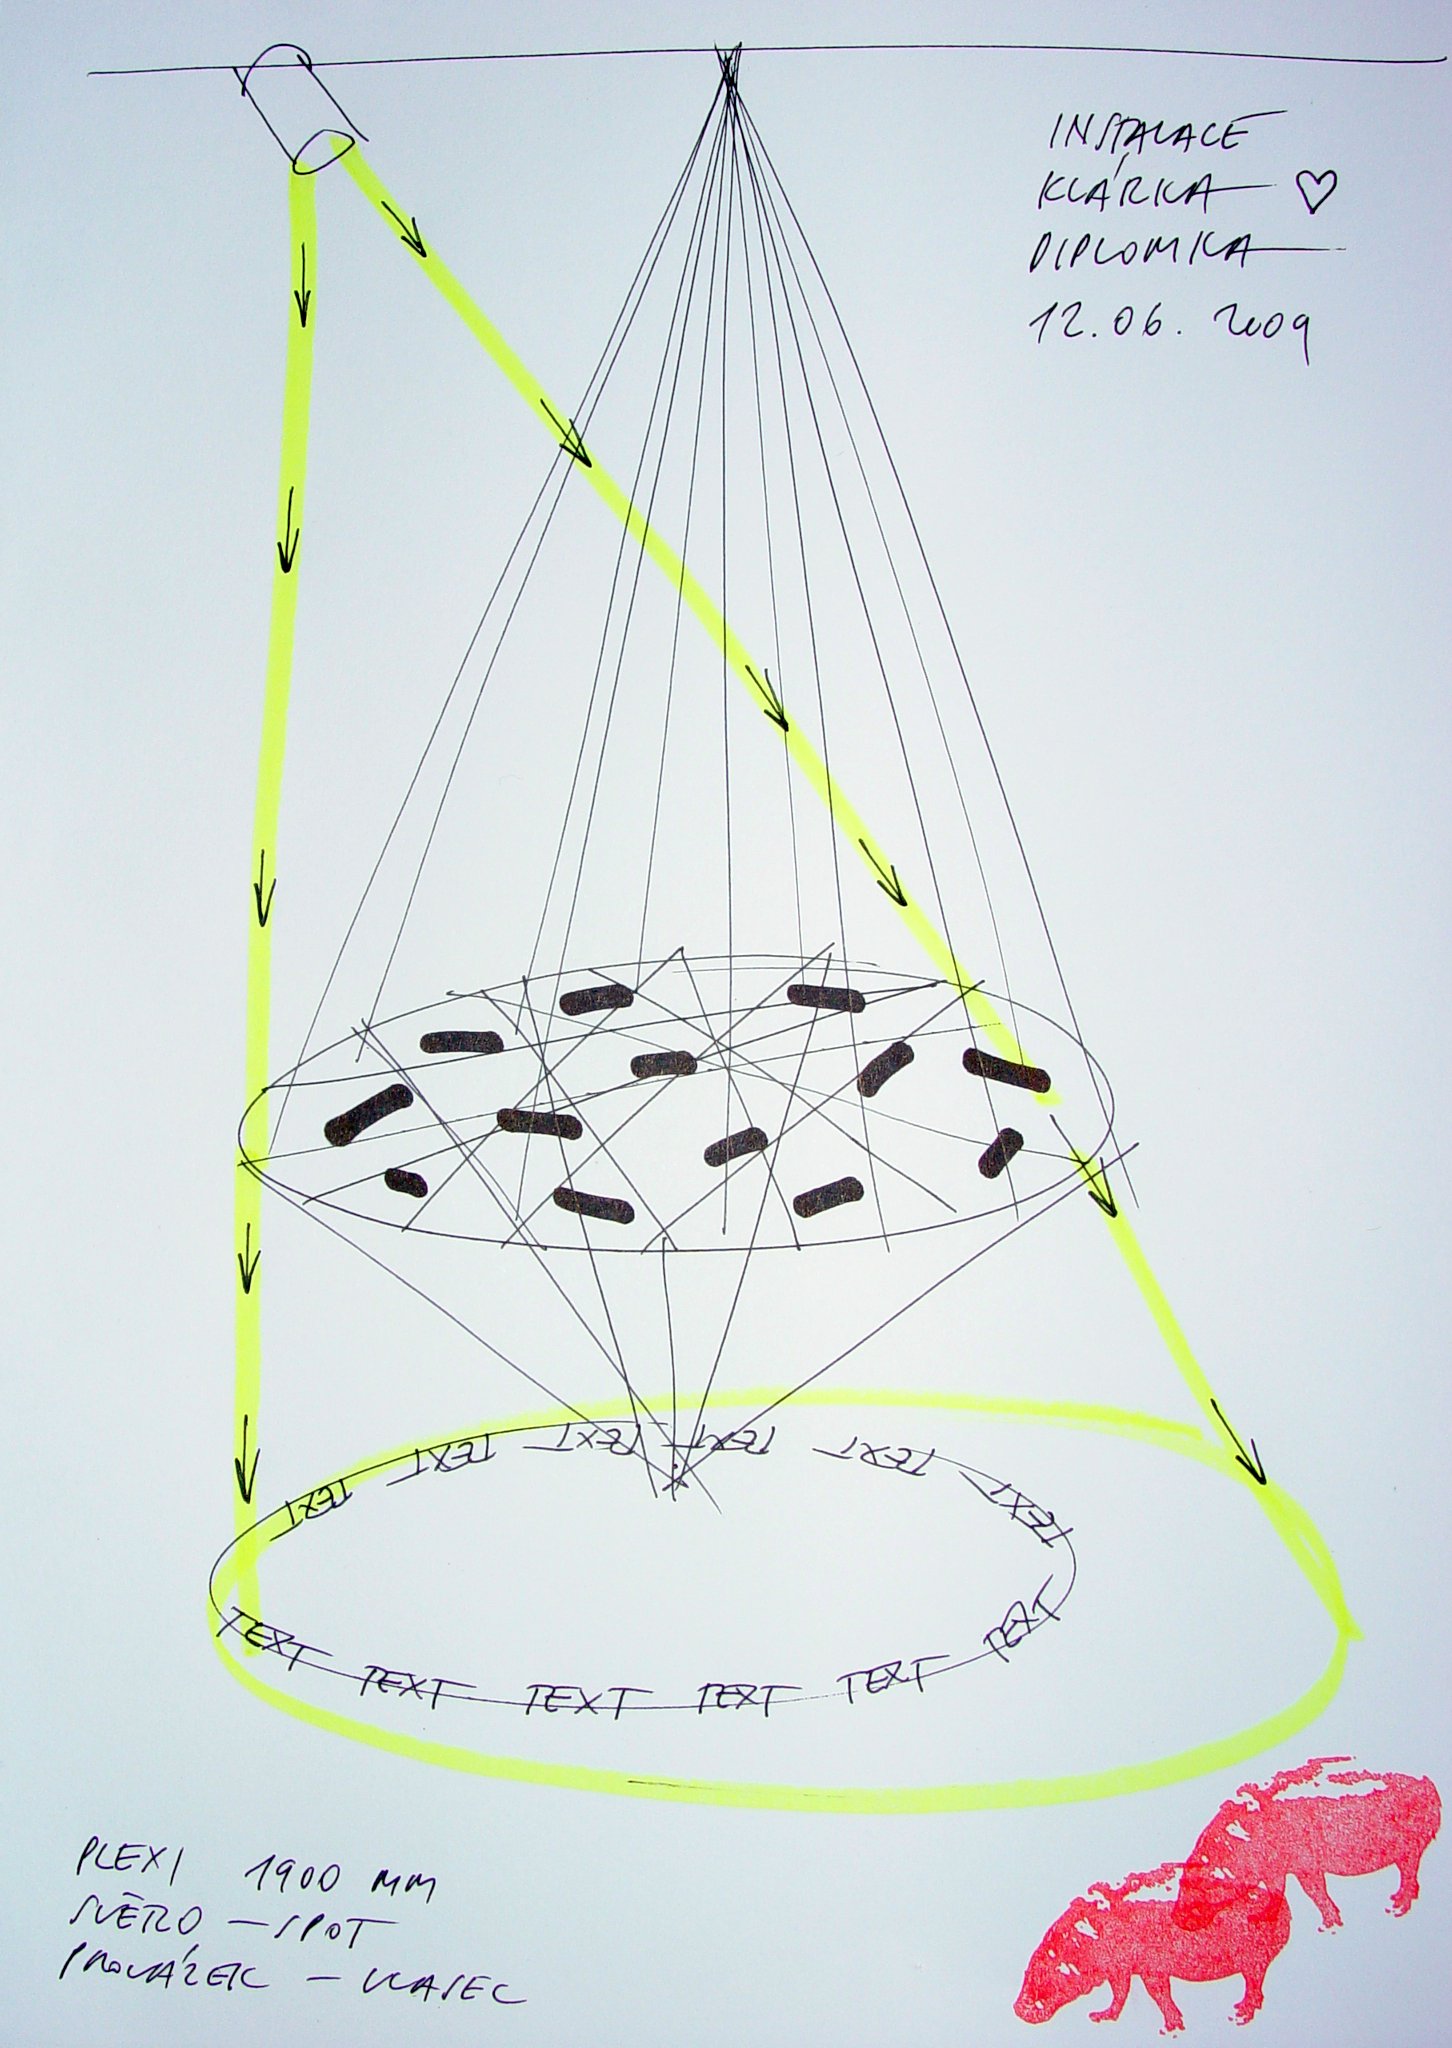 INSTALACE
KLÁRKA ♡
DIPLOMKA
12.06. 2009
TEXT TEXT TEXT TEXT TEXT TEXT
TEXT TEXT TEXT TEXT TEXT TEXT
PLEXI 1900 MM
SVĚTLO – SPOT
PROVÁZEK – VLASEC